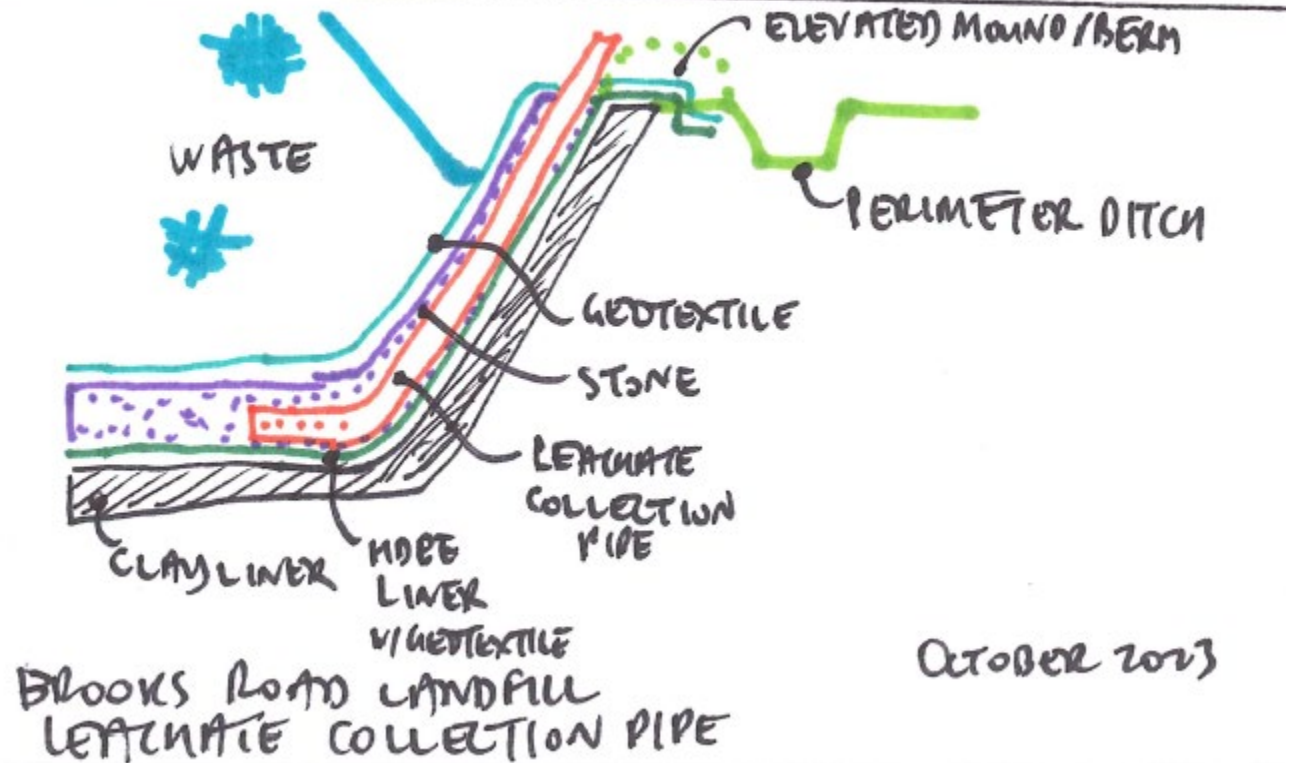 ELEVATED MOUND/BERM
WASTE
PERIMETER DITCH
GEOTEXTILE
STONE
LEACHATE
COLLECTION
PIPE
CLAY LINER
HDPE
LINER
W/GEOTEXTILE
OCTOBER 2023
BROOKS ROAD LANDFILL
LEACHATE COLLECTION PIPE